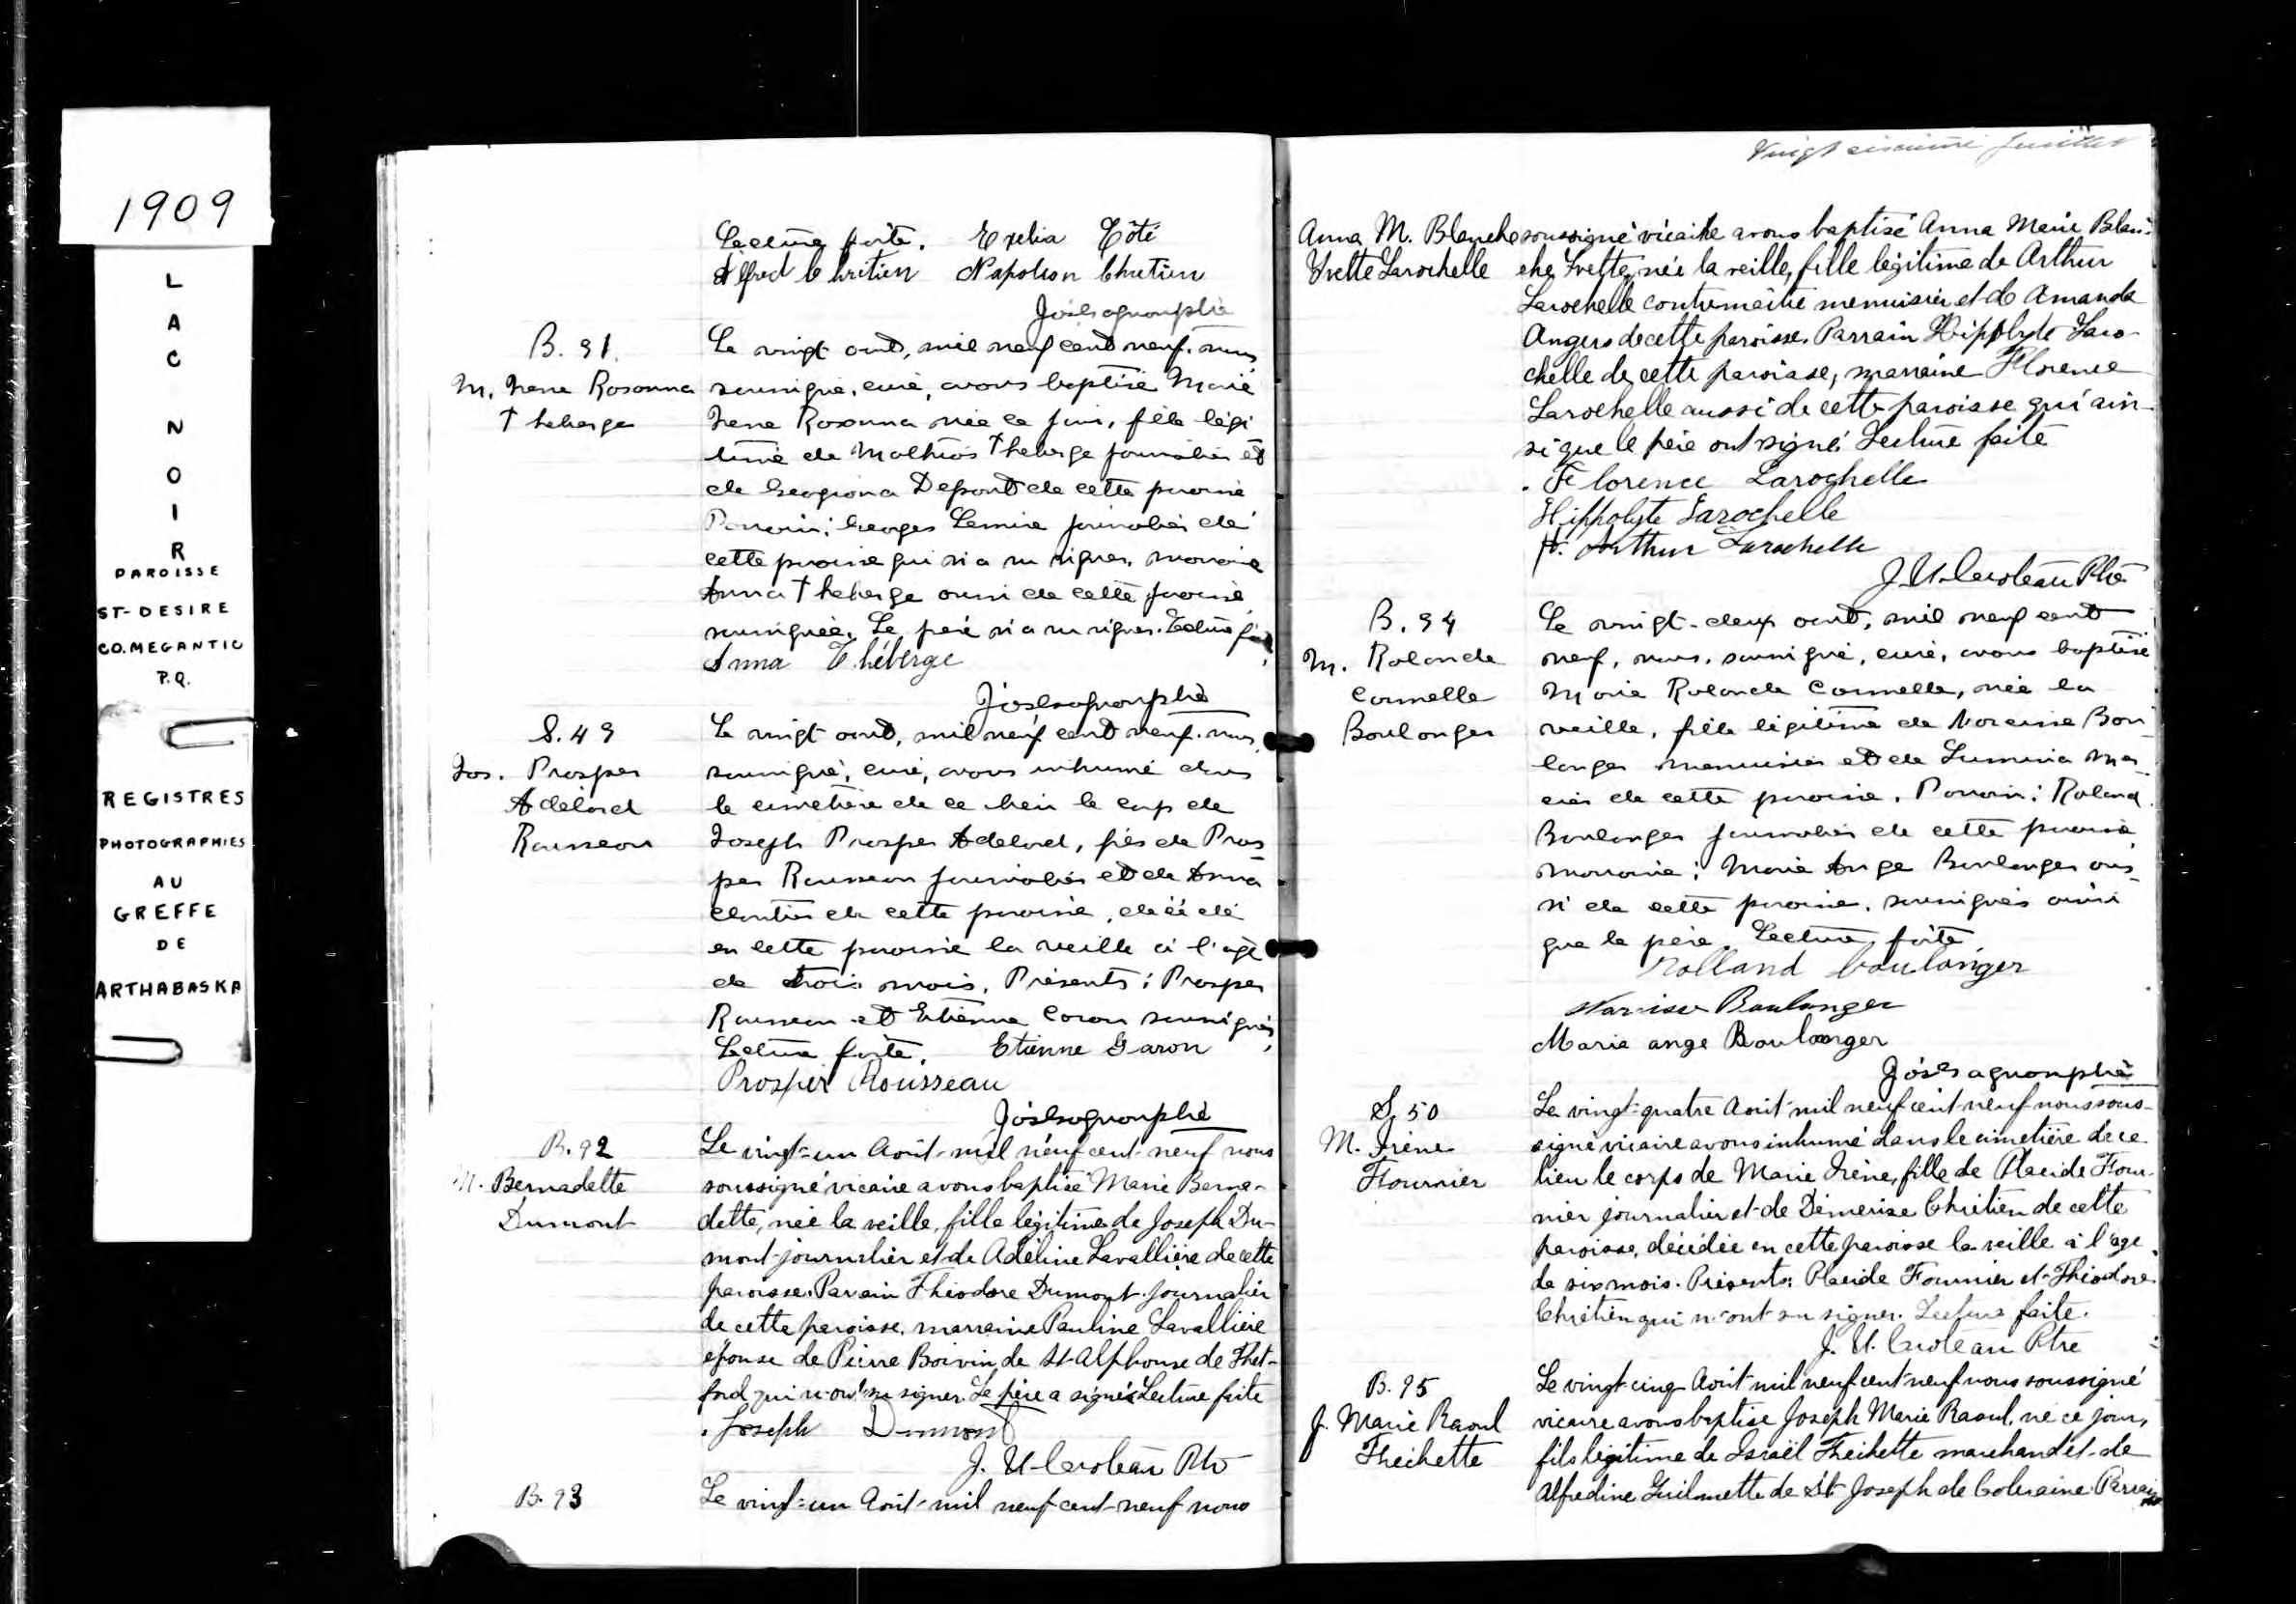 1909
L
A
C
N
O
I
R
PAROISSE
ST-DESIRE
CO.MEGANTIC
P.Q.
REGISTRES
PHOTOGRAPHIES
AU
GREFFE
DE
ARTHABASKA
Lecture faite. Exelia Côté
Alfred Chrétien Napoléon Chretien
B. 91.
M. Irene Rosanna
Theberge
Le vingt août, mil neuf cent neuf, nous
soussigné, curé, avons baptisé Marie
Irene Rosanna née ce jour, fille légi
time de Mathias Theberge journalier et
de Georgiana Depont de cette paroisse
Parrain: Georges Lemire journalier de
cette paroisse qui n'a su signer, marraine
Anna Theberge aussi de cette paroisse
soussignée. Le père n'a su signer. Lecture faite
Anna Théberge
S. 49
Jos. Prosper
Adélard
Rousseau
Le vingt août, mil neuf cent neuf, nous,
soussigné, curé, avons inhumé dans
le cimetière de ce lieu le corps de
Joseph Prosper Adelard, fils de Pros
per Rousseau journalier et de Anna
Cloutier de cette paroisse, décédé
en cette paroisse la veille à l'age
de trois mois. Présents: Prosper
Rousseau et Etienne Caron soussignés
Lecture faite. Etienne Garon
Prosper Rousseau
B. 92
M. Bernadette
Dumont
Le vingt-un Août mil neuf cent neuf nous
soussigné vicaire avons baptisé Marie Berna-
dette, née la veille, fille légitime de Joseph Du-
mont journalier et de Adéline Lavallière de cette
paroisse. Parrain Théodore Dumont journalier
de cette paroisse, marraine Pauline Lavallière
épouse de Pierre Boivin de St-Alphonse de Thet-
ford qui n'ont su signer. Le père a signé. Lecture faite
Joseph Dumont
J. U. Croteau Ptre
B. 93
Le vingt-un Août mil neuf cent neuf nous
Vingt sixième feuillet
Anna M. Blanche
Yvette Larochelle
soussigné vicaire avons baptisé Anna Marie Blan-
che Yvette, née la veille, fille légitime de Arthur
Larochelle contremaître menuisier et de Amanda
Angers de cette paroisse. Parrain Hippolyte Laro-
chelle de cette paroisse, marraine Florence
Larochelle aussi de cette paroisse qui ain-
si que le père ont signé. Lecture faite
Florence Larochelle
Hippolyte Larochelle
Arthur Larochelle
J. U. Croteau Ptre
B. 94
M. Rolande
Cormelle
Boulanger
Le vingt-deux août, mil neuf cent
neuf, nous, soussigné, curé, avons baptisé
Marie Rolande Cormelle, née la
veille, fille légitime de Narcisse Bou
langer menuisier et de Lumina Mer
cier de cette paroisse. Parrain: Roland
Boulanger journalier de cette paroisse,
marraine: Marie Ange Boulanger aus
si de cette paroisse, soussignés ainsi
que le père. Lecture faite
Rolland boulanger
Narcisse Boulanger
Marie ange Boulanger
S. 50
M. Irène
Fournier
Le vingt-quatre Août mil neuf cent neuf nous sous-
signé vicaire avons inhumé dans le cimetière de ce
lieu le corps de Marie Irène, fille de Placide Four-
nier journalier et de Démerise Chrétien de cette
paroisse, décédée en cette paroisse la veille à l'age
de six mois. Présents: Placide Fournier et Théodore
Chrétien qui n'ont su signer. Lecture faite.
J. U. Croteau Ptre
B. 95
J. Marie Raoul
Fréchette
Le vingt-cinq Août mil neuf cent neuf nous soussigné
vicaire avons baptisé Joseph Marie Raoul, né ce jour,
fils légitime de Israël Fréchette marchand et de
Alfredine Guilmette de St Joseph de Coleraine. Parrain